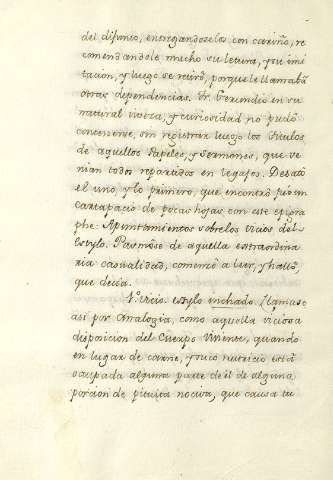 del difunto, entregandoselos con cariño, re
comendandole mucho su letura, y su imi
tacion, y luego se retiró, porque le llamaban
otras dependencias. Fr. Gerundio en su
natural viveza, y curiosidad no pudo
contenerse, sin registrar luego los titulos
de aquellos Papeles, y Sermones, que ve
nian todos repartidos en legajos. Desató
el uno, y lo primero, que encontró fue un
cartapacio de pocas hojas con este epigra
phe: Apuntamientos sobre los vicios del
Estylo. Pasmóse de aquella extraordina
ria casualidad, comenzó a leer, y halló,
que decia.
1.º vicio estylo inchado. Llamase
asi por Analogia, como aquella viciosa
disposicion del Cuerpo Viviente, quando
en lugar de carne, y suco nutricio está
ocupada alguna parte de él de alguna
porcion de pituita nociva, que causa tu